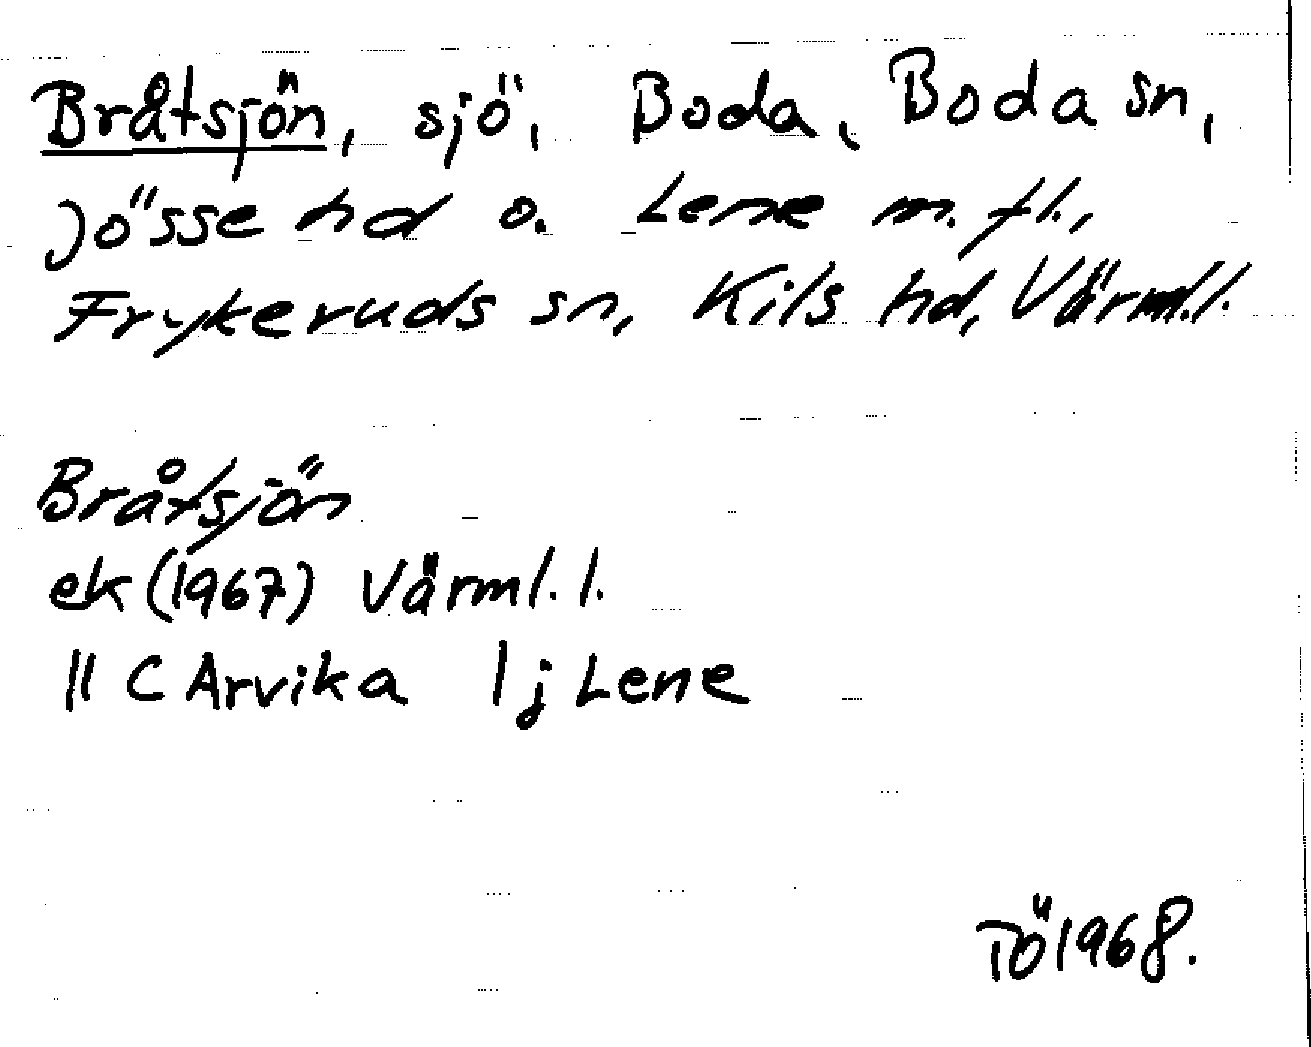 Bråtsjön, sjö, Boda, Boda sn,
Jösse hd o. Lene m. fl.,
Frykeruds sn, Kils hd, Värml.l.
Bråtsjön
ek (1967) Värml. l.
11 C Arvika 1 j Lene
TÖ 1968.